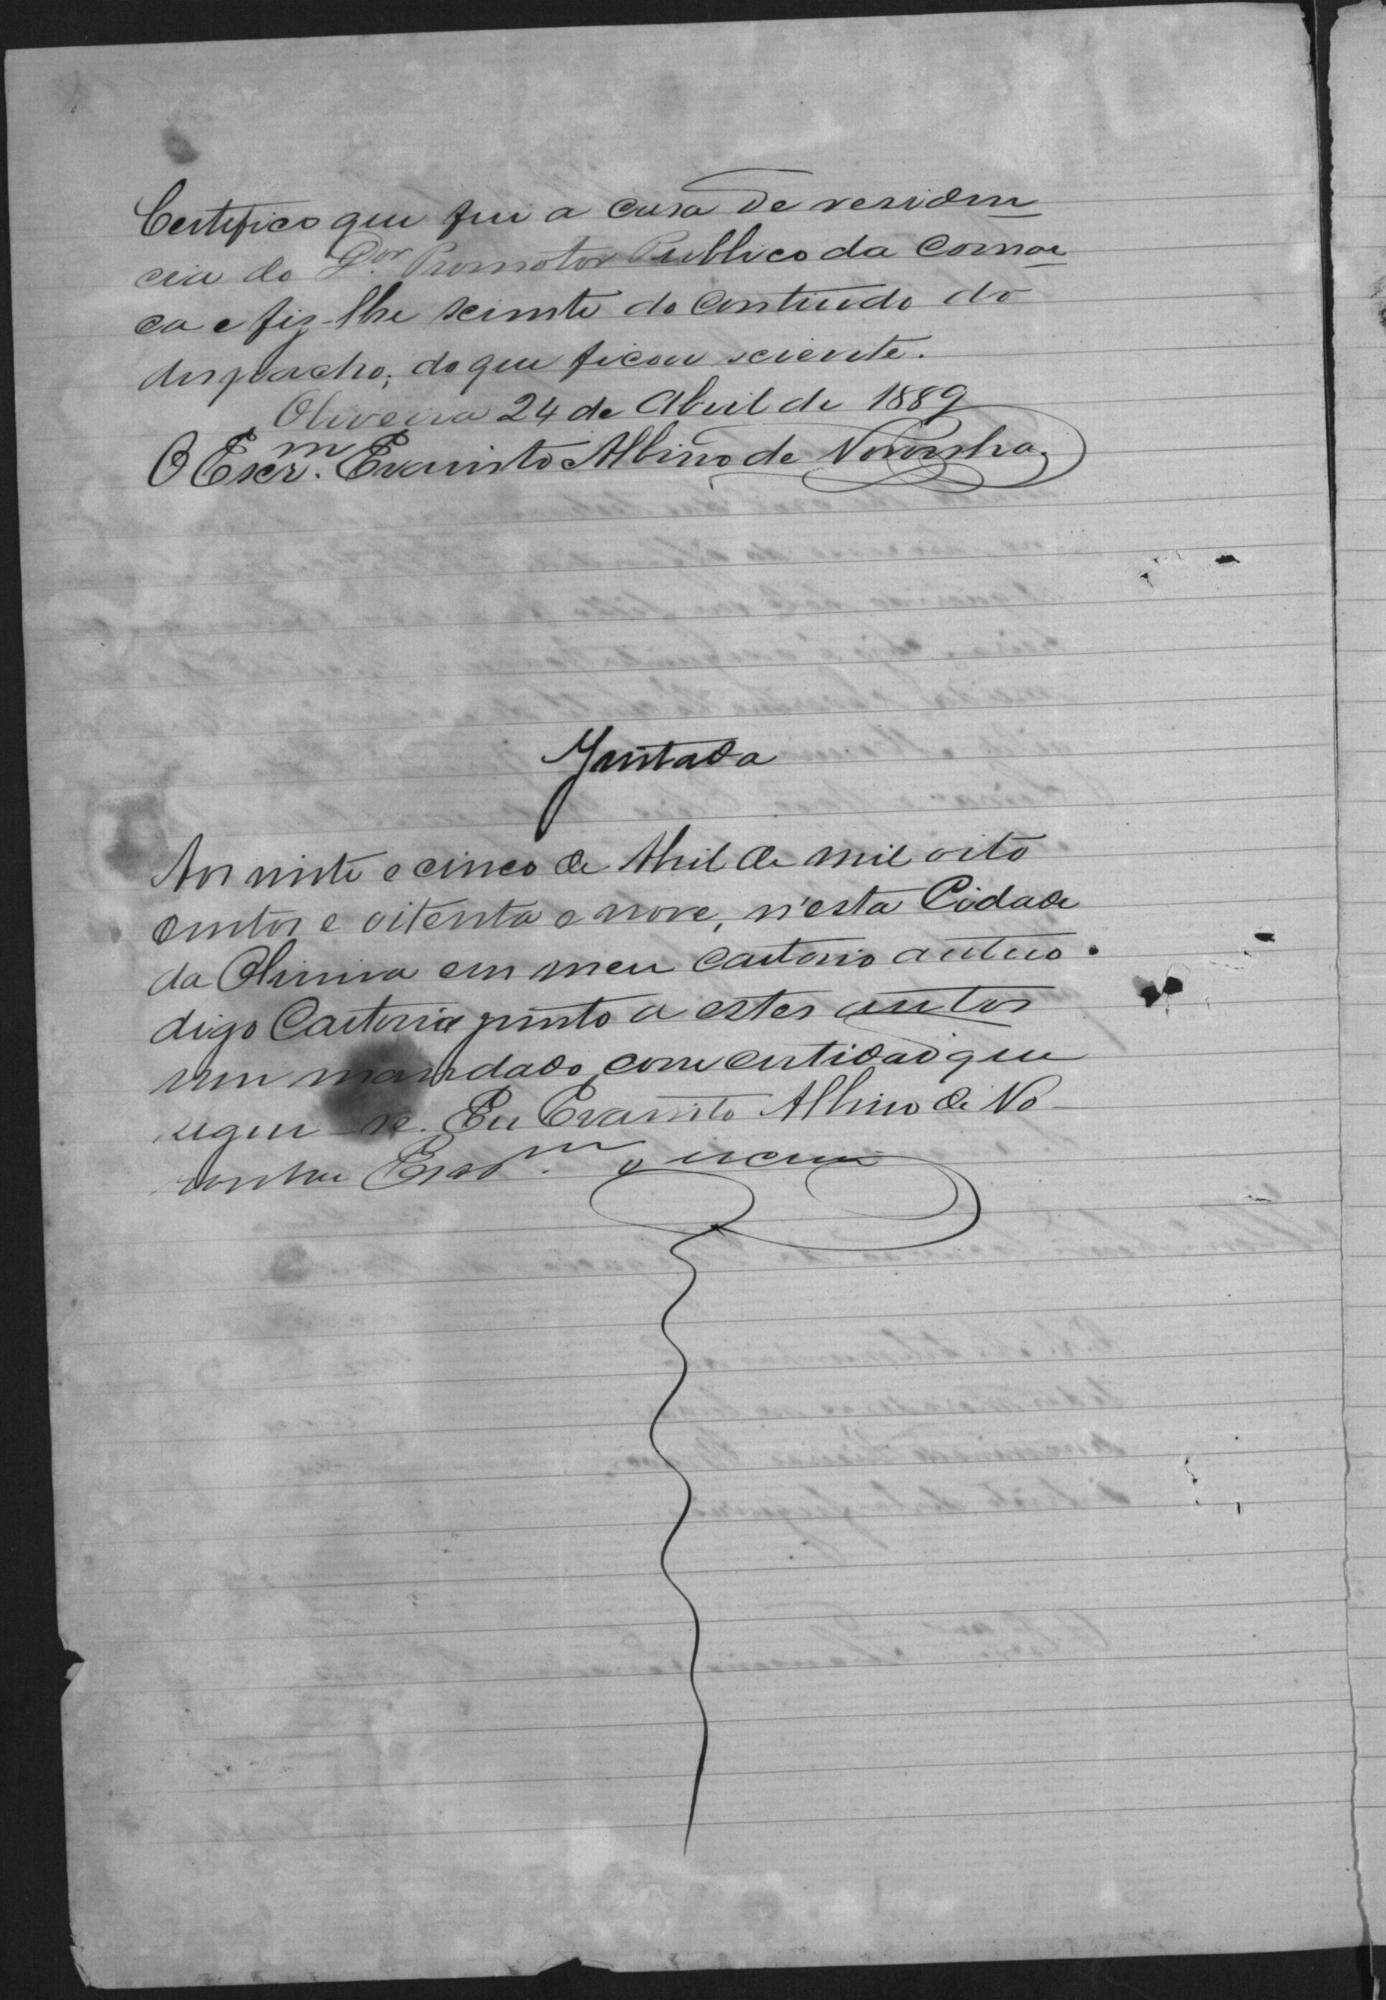 Certifico que fui a casa de residen
cia do Dor. Promotor Publico da Comar
ca e fiz-lhe sciente do contiúdo do
despacho; do que ficou sciente.
Oliveira 24 de Abril de 1889
O Escrm. Evaristo Albino de Noronha.
Juntada
Aos vinte e cinco de Abril de mil oito
centos e oitenta e nove, n'esta Cidade
da Oliveira em meu cartorio autuo
digo Cartorio junto a estes autos
um mandado com certidão que
segue-se. Eu Evaristo Albino de No
ronha Escrm. o escrevi